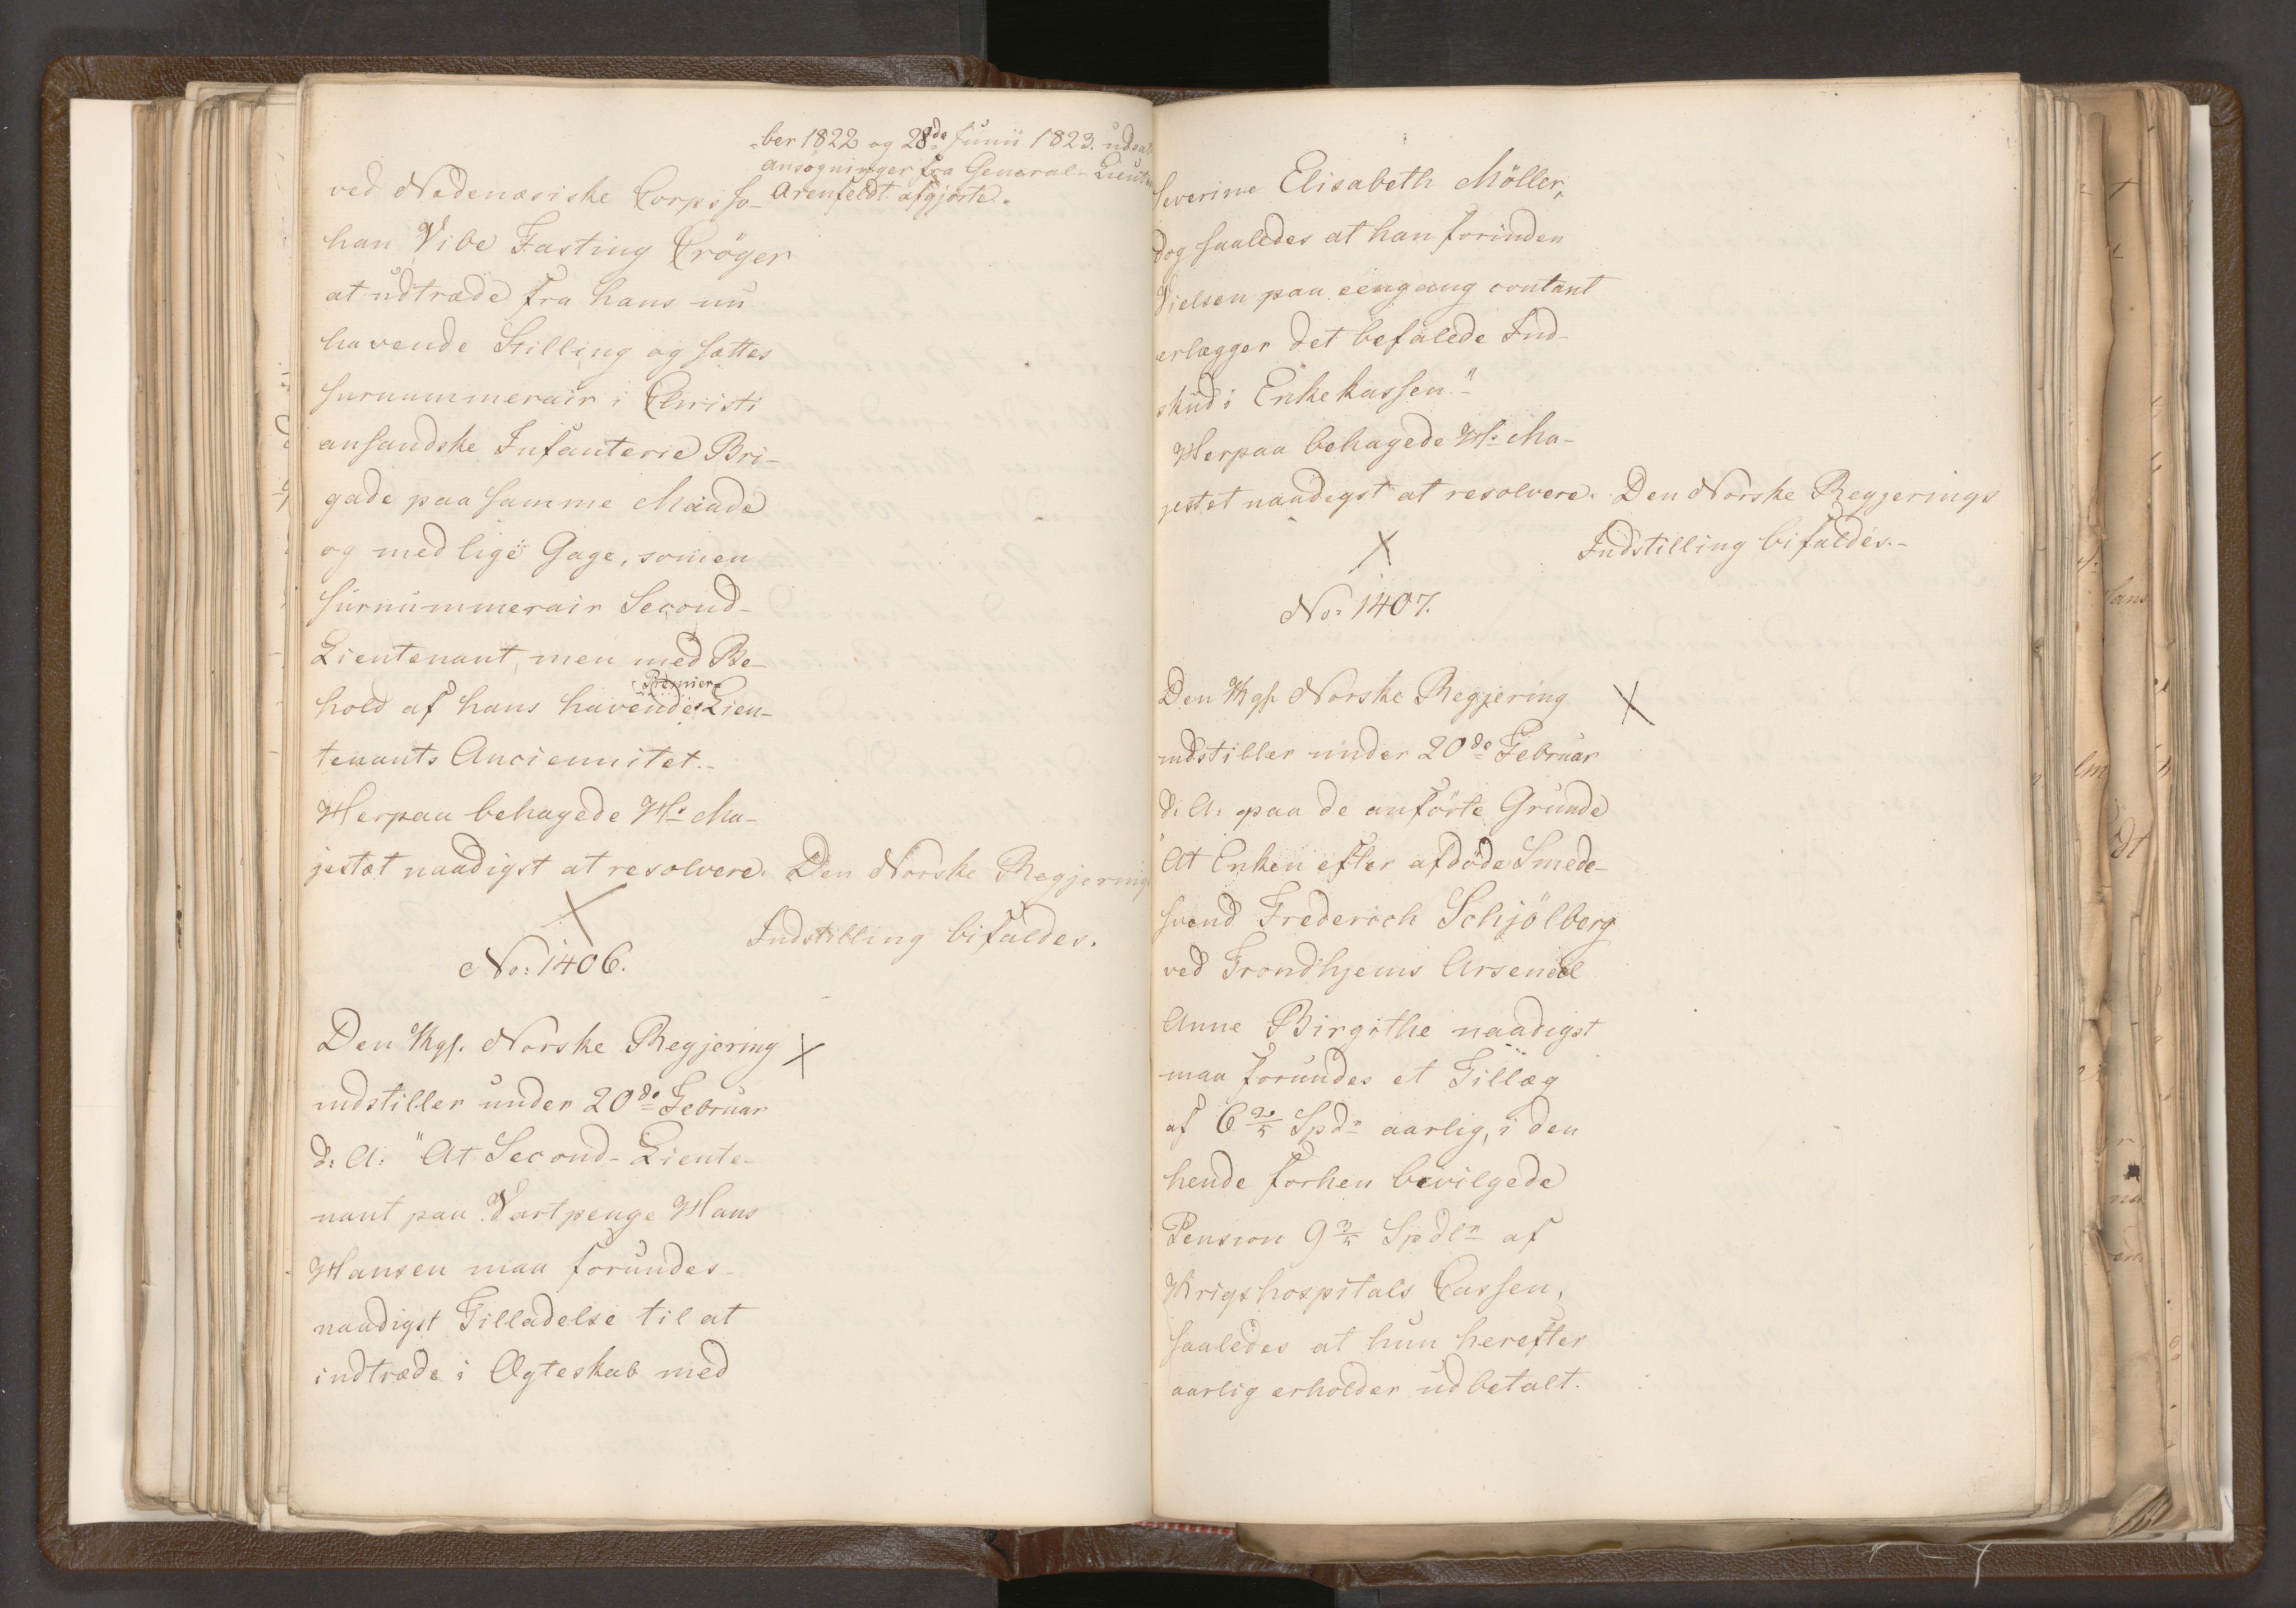 -ber 1822 og 28de Junii 1823. udsat
ansøgninger fra General-Lieut
Arenfeldt afgjorte.
ved Nedenæsiske Corps Jo-
han Vibe Fasting Cröger
at udtræde fra hans nu
havende Stilling og sættes
surnummerair i Christi
ansandske Infanterie Bri-
gade paa samme Maade
og med lige Gage, som en
surnummerair Second-
Lieutenant, men med Be-
hold af hans havende Premier-Lieu-
tenants Anciennitet.-
Herpaa behagede Hs Ma-
jestæt naadigst at resolvere. Den Norske Regjerings
Indstilling bifaldes.
No: 1406.
Den Kgl. Norske Regjering
indstiller under 20de Februar
d: A: "At Second-Lieute-
nant paa Vartpenge Hans
Hansen maa forundes
naadigst Tilladelse til at
indtræde i Ægteskab med
Severine Elisabeth Möller,
dog saaledes at han forinden
Vielsen paa eengang contant
erlægger det befalede Ind-
skud i Enkekassen."-
Herpaa behagede Hs Ma-
jestet naadigst at resolvere. Den Norske Regjerings
Indstilling bifaldes.-
No: 1407.
Den Kgl. Norske Regjering
indstiller under 20de Februar
d: A: paa de anförte Grunde
"At Enken efter afdöde Smede-
svend Frederich Schjölberg
ved Trondhjems Arsenal
Anne Birgithe naadigst
maa forundes et Tillæg
af 6 2/5 Spd. aarlig, i den
hende forhen bevilgede
Pension 9 3/5 Spdlr af
Krigshospitals Cassen,
saaledes at hun herefter
aarlig erholder udbetalt.